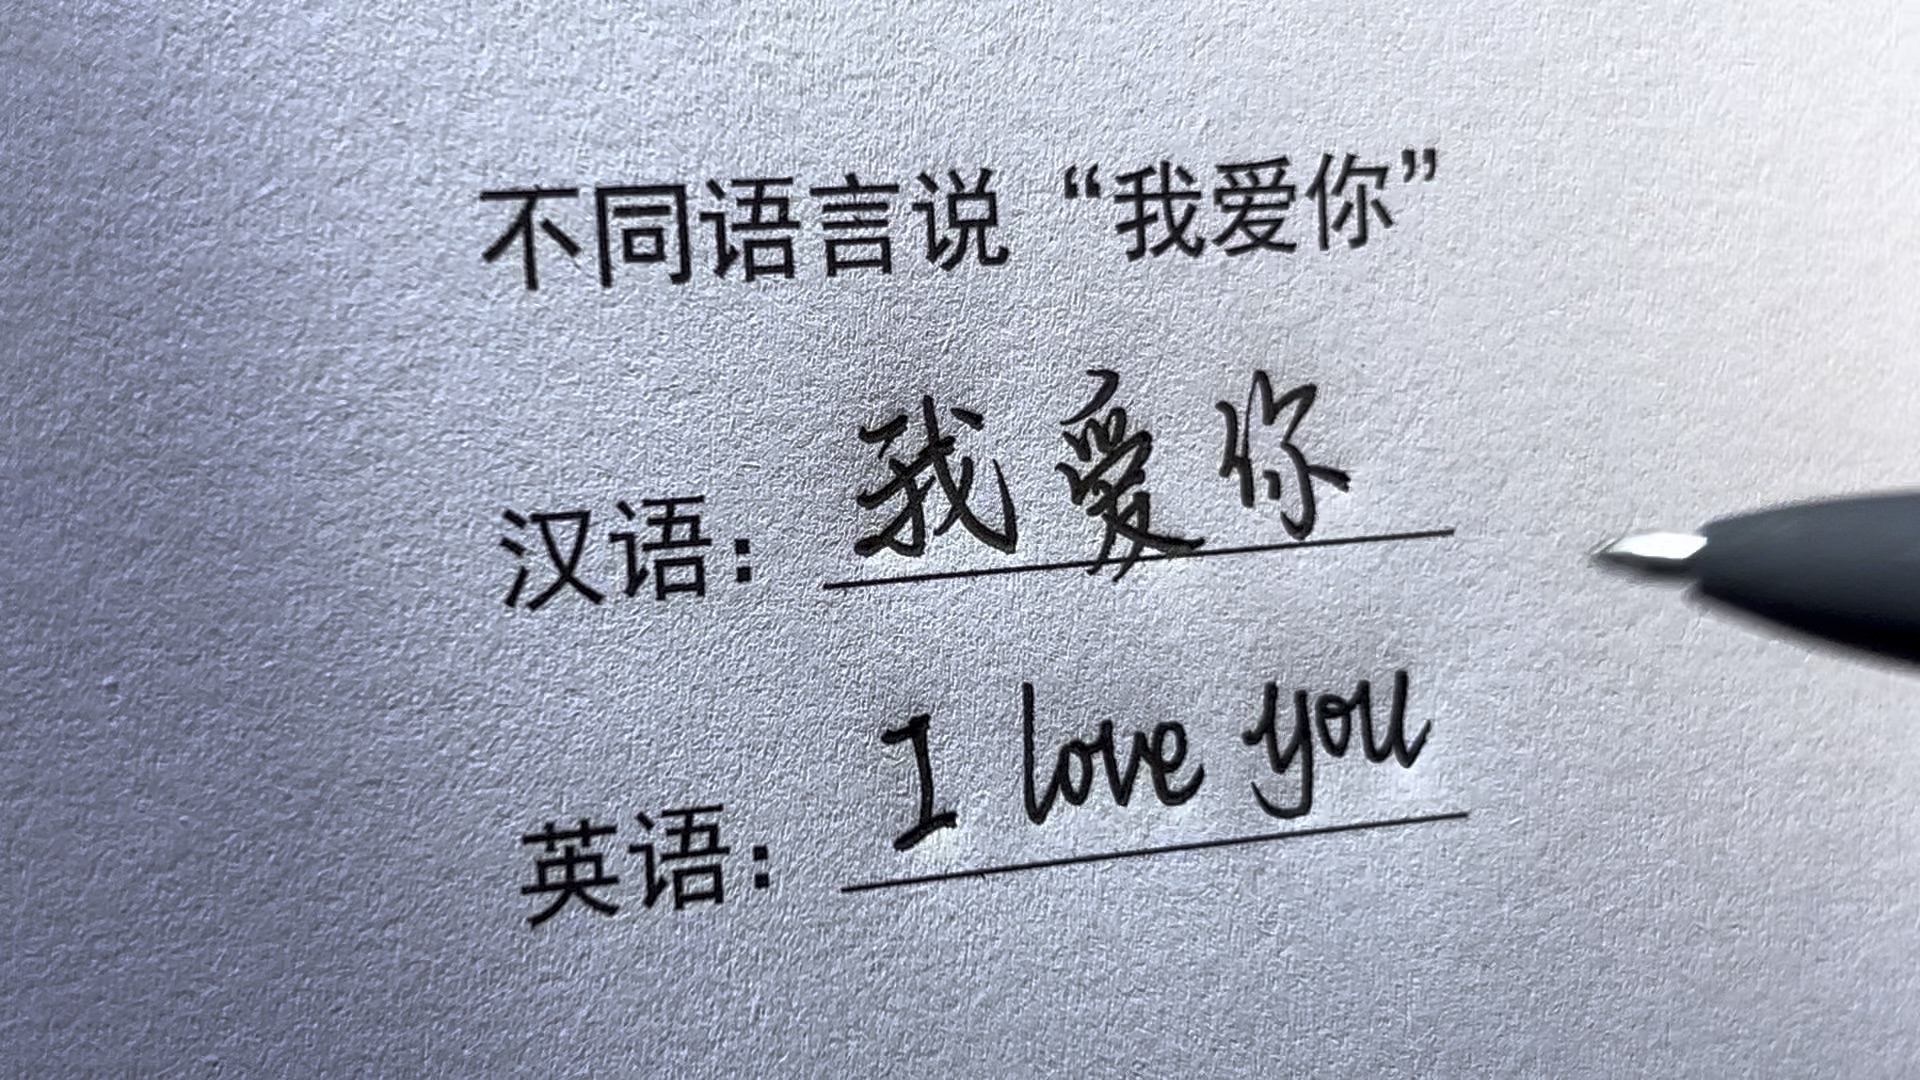 不同语言说“我爱你”
汉语：我爱你
英语：I love you